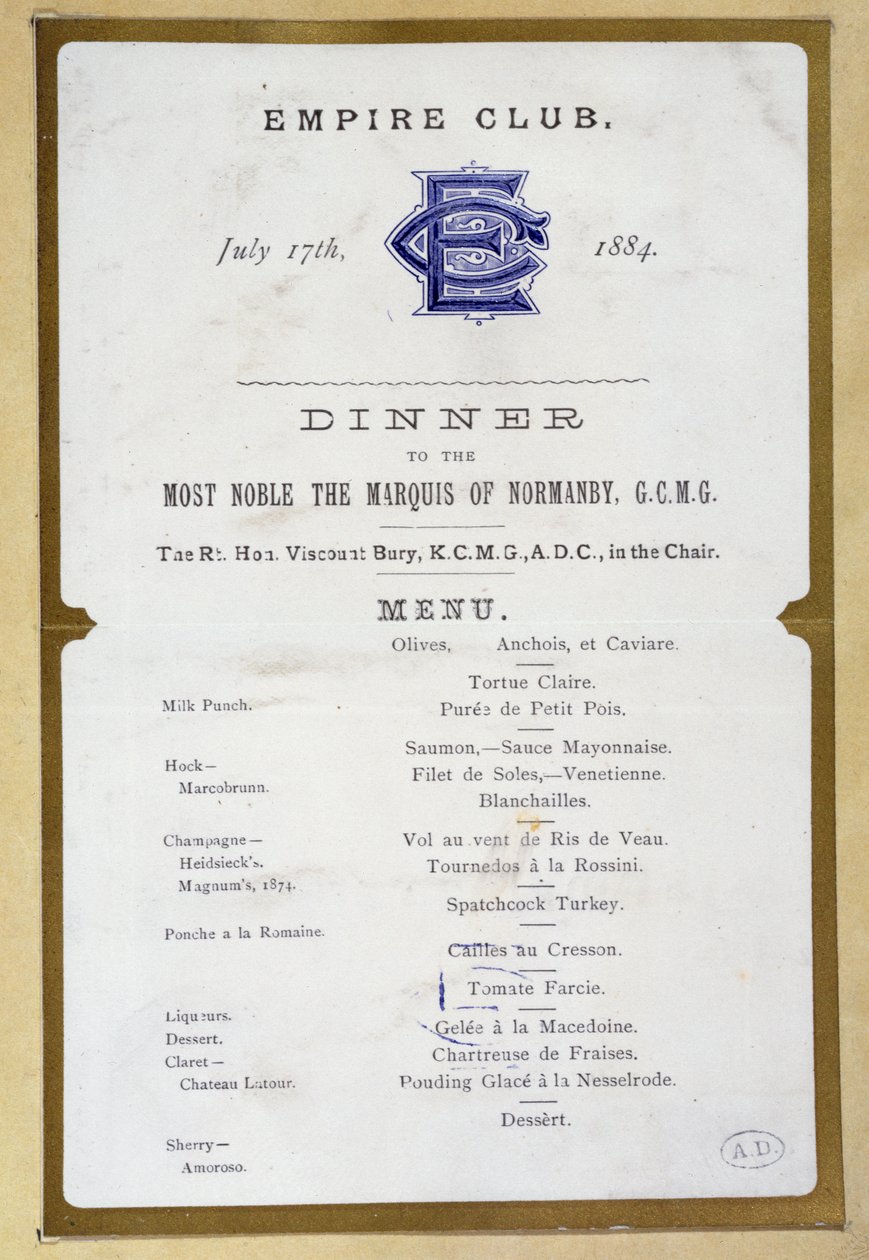 EMPIRE CLUB.
July 17th, 1884.
EC
DINNER
TO THE
MOST NOBLE THE MARQUIS OF NORMANBY, G.C.M.G.
The Rt. Hon. Viscount Bury, K.C.M.G., A.D.C., in the Chair.
MENU.
Olives, Anchois, et Caviare.
Tortue Claire.
Milk Punch.
Purée de Petit Pois.
Saumon,—Sauce Mayonnaise.
Hock—
Filet de Soles,—Venetienne.
Marcobrunn.
Blanchailles.
Champagne—
Vol au vent de Ris de Veau.
Heidsieck's.
Tournedos à la Rossini.
Magnum's, 1874.
Spatchcock Turkey.
Ponche a la Romaine.
Cailles au Cresson.
Tomate Farcie.
Liqueurs.
Gelée à la Macedoine.
Dessert.
Chartreuse de Fraises.
Claret—
Chateau Latour.
Pouding Glacé à la Nesselrode.
Dessèrt.
Sherry—
Amoroso.
A.D.